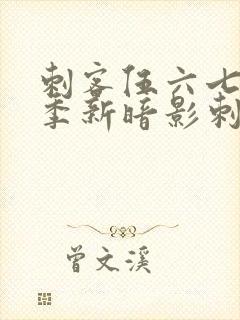 刺客伍六七
季新暗影刺
曾文溪